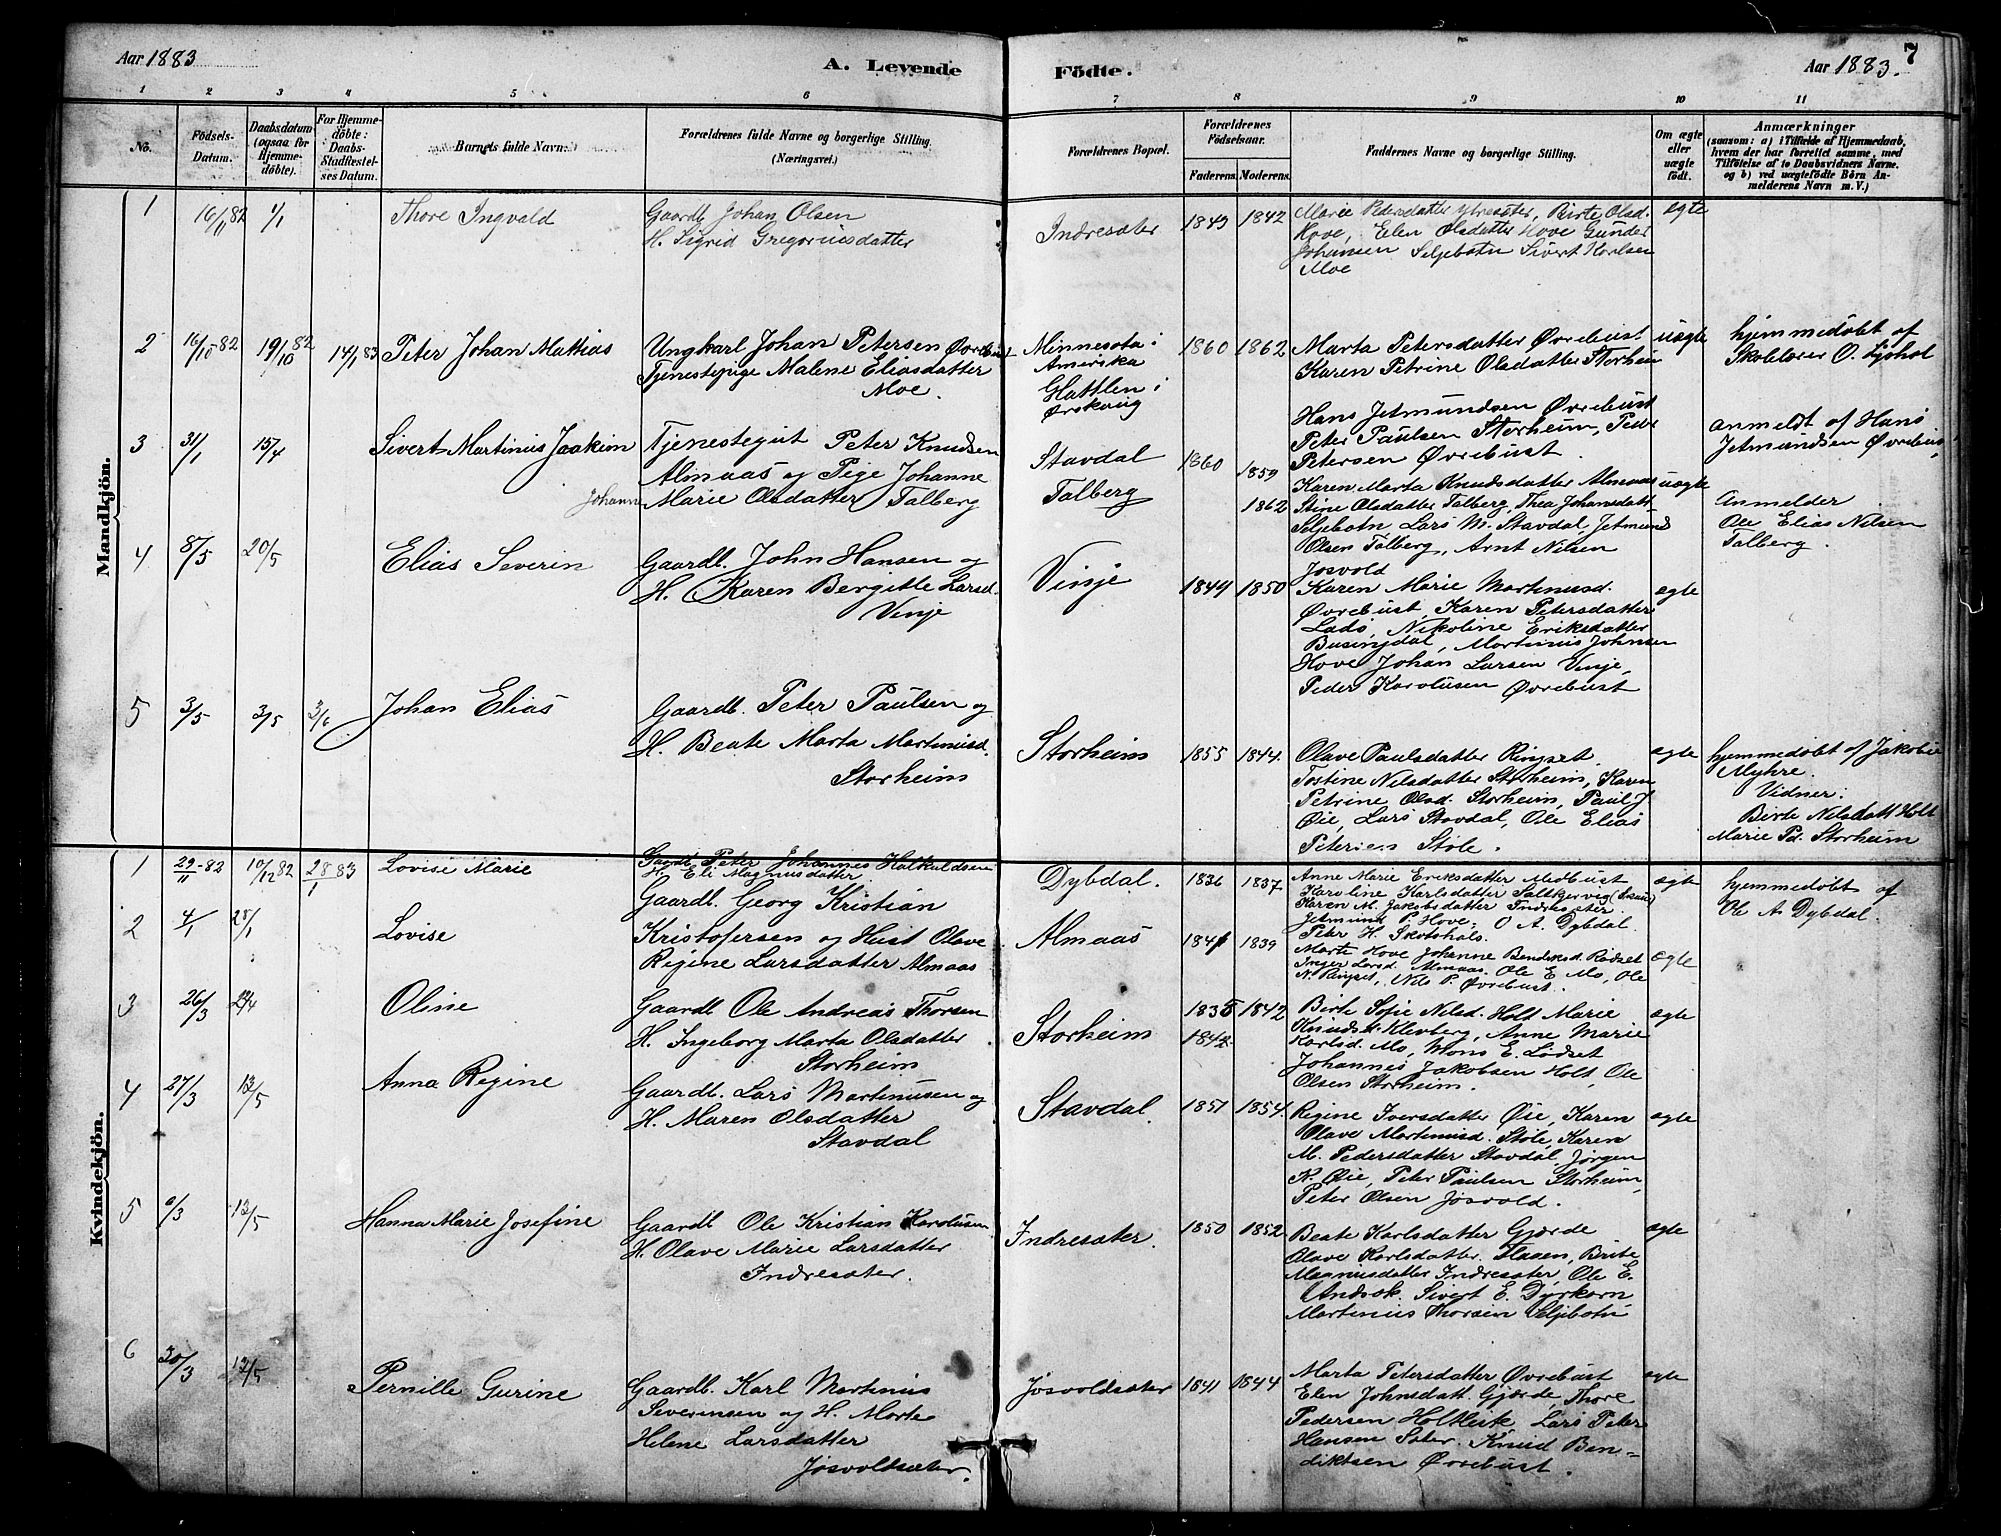 Aar 1883
A. Levende
Födte.
Aar 1883.
7
1 2 3 4 5 6 7 8 9 10 11
No.
Födsels-Datum.
Daabsdatum (ogsaa for Hjemme-döbte).
For Hjemme-döbte: Daabs-Stadfæstel-ses Datum.
Barnets fulde Navn.
Forældrenes fulde Navne og borgerlige Stilling. (Næringsvei.)
Forældrenes Bopæl.
Forældrenes Födselsaar.
Faderens. Moderens.
Faddernes Navne og borgerlige Stilling.
Om ægte eller uægte födt.
Anmærkninger
(saasom: a) i Tilfælde af Hjemmedaab, hvem der har forrettet samme, med Tilföielse af to Daabsvidners Navne. og b) ved uægtefödte Börn An-melderens Navn m. V.)
Mandkjön.
1 16/11 82 1/1 Thore Ingvald
Gaardb. Johan Olsen
H. Sigrid Gregoriusdatter
Indresæter 1849 1842
Marie Pedersdatter Ytresæter, Birte Olsd.
Hove, Elen Olsdatter Hove Gunder
Johansen Seljebotn Sivert Karlsen
Moe
ægte
2 16/10 82 19/10 82 14/1 83 Peter Johan Mathias
Ungkarl Johan Petersen Øvrebust
Tjenestepige Malene Eliasdatter
Moe.
Minnesota i
Amerika
Hattlen i
Ørskoug
1860 1862
Marta Petersdatter Øvrebust
Karen Petrine Olsdatter Storheim
Hans Jetmundsen Øvrebust
Peter Paulsen Storheim, Peder
Petersen Øvrebust.
uægte
hjemmedøbt af
Skolelærer O. Sjøhol
anmeldt af Hans
Jetmundsen Øvrebust
3 31/1 15/4 Sivert Martinus Joakim
Johann
Tjenestegut Peter Knudsen
Almaas og Pige Johanne
Marie Olsdatter Talberg
Stavdal
Talberg
1860 1859
1862
Karen Marta Knudsdatter Almaas
Stine Olsdatter Talberg, Thea Johansdatt
Seljebotn Lars M. Stavdal, Jetmund
Olsen Talberg, Arnt Nilsen
Josvold
uægte
Anmelder
Ole Elias Nilsen
Talberg.
4 8/5 20/5 Elias Severin
Gaardb. John Hansen og
H. Karen Bergitte Larsd.
Vinje
Vinje 1849 1850
Karen Marie Martinusd.
Øvrebust, Karen Petersdatter
Ladø, Nikoline Eriksdatter
Busengdal, Martinus Johnsen
Hove Johan Larsen Vinje,
Peder Karolusen Øvrebust
ægte
5 3/5 3/5 3/6 Johan Elias
Gaardb. Peter Paulsen og
H. Beate Marta Martinusd.
Storheim
Storheim 1855 1844.
Olave Paulsdatter Ringset.
Tostine Nilsdatter Storheim, Karen
Petrine Olsd. Storheim, Paul J
Øie, Lars Stavdal, Ole Elias
Petersen Støle.
ægte
hjemmedøbt af Jakobie
Myhre.
Vidner:
Birte Nilsdatt Holt
Marie Pd. Storheim
Kvindekjön.
1 29/11-82 10/12 82 28/1 83 Lovise Marie
Gaardb. Peter Johannes Halkuldsen
H. Eli Magnusdatter
Dybdal. 1836 1837
Anne Marie Eriksdatter Medbust
Karoline Karlsdatter
Karen M. Jakobsdatter Indresæter
Jetmund P. Hove, O A. Dybdal.
Peter H.
ægte
hjemmedøbt af
Ole A. Dybdal.
2 4/1 28/1 Lovise
Gaardb. Georg Kristian
Kristofersen og Hust Olave
Regine Larsdatter Almaas
Almaas 1841 1839
Marte Hove Johanne Bendiksd. Rødset
Inger Larsd. Almaas. Ole E. Mo, Ole
N. Ringset, Nils P. Øvrebust.
ægte
3 26/3 Oline
Gaardb Ole Andreas Thorsen
H. Ingeborg Marta Olsdatter
Storheim
Storheim 1835 1842
1842
Birte Sofie Nilsd. Holt Marie
Knudsdtr Klevberg, Anne Marie
Karlsd. Mo, Mons E. Lødset
Johannes Jakobsen Holt, Ole
Olsen Storheim.
ægte
4 27/3 13/5 Anna Regine
Gaardb. Lars Martinusen og
H. Maren Olsdatter
Stavdal
Stavdal. 1851 1854.
Regine Iversdatter Øie, Karen
Olave Martinusd. Støle, Karen
M. Pedersdatter Stavdal Jørgen
K. Øie, Peter Paulsen Storheim,
Peter Olsen Josvold.
ægte
5 13/5 Hanna Marie Josefine
Gaardb Ole Kristian Karolusen
H. Olave Marie Larsdatter
Indresæter.
Indresæter. 1850 1852
Beate Karlsdatter Gjærde
Olave Karlsdatter. Flaaen, Brite
Magnusdatter Indresæter, Ole E.
Andsok. Sivert E. Dyrkorn
Martinus Thorsen Seljebotn
ægte
6 30/3 13/5 Pernille Gurine
Gaardb. Karl Martinus
Severinsen og H. Marte
Helene Larsdatter
Jøsvoldsæter.
Jøsvoldsæter 1841 1844
Marta Petersdatter Øvrebust
Elen Johnsdatt. Gjærde, Thore
Pedersen Holtleite Lars Peter
Hansen Sæter. Knud Ben-
diktsen Øvrebust.
ægte